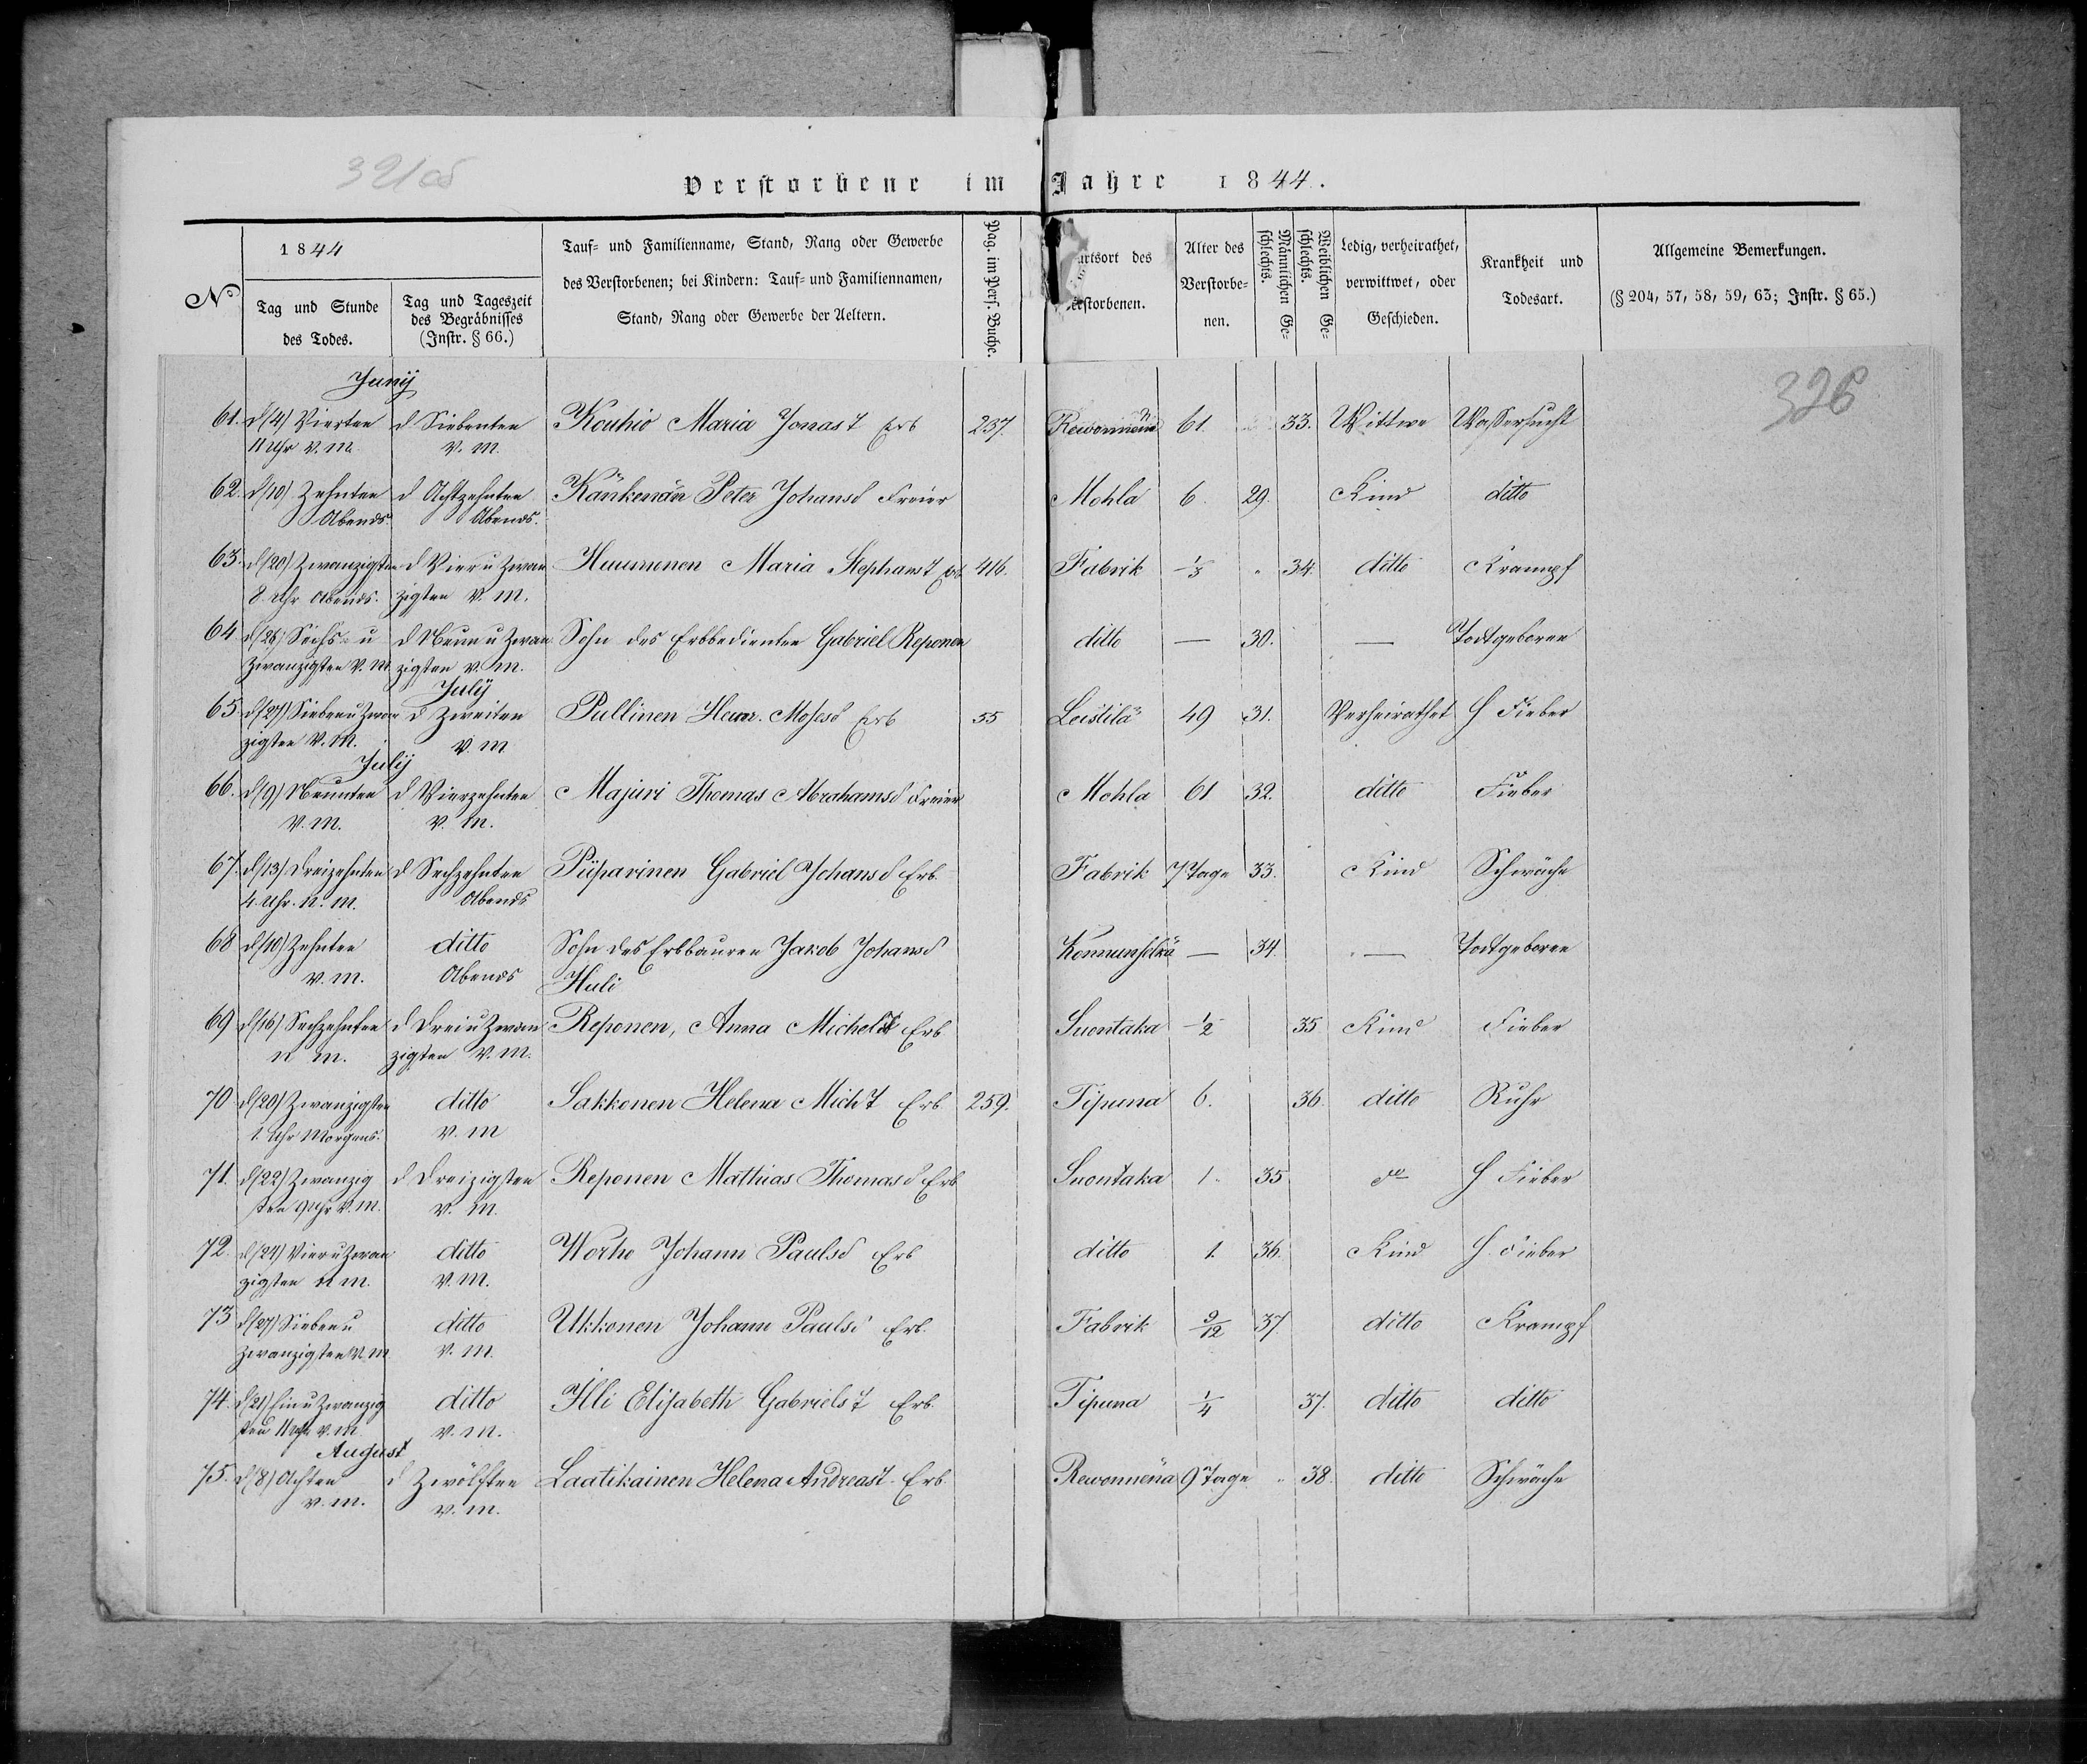 Verstorbene im Jahre 1844.
326
№
1844
Tag und Stunde des Todes.
Tag und Tageszeit des Begräbnisses (Instr. § 66.)
Tauf= und Familienname, Stand, Rang oder Gewerbe
des Verstorbenen; bei Kindern: Tauf= und Familiennamen,
Stand, Rang oder Gewerbe der Aeltern.
Pag. im Pers. Buche.
urtsort des erstorbenen.
Alter des Verstorbe= nen.
Männlichen Ge= schlechts.
Weiblichen Ge= schlechts.
Ledig, verheirathet, verwittwet, oder Geschieden.
Krankheit und Todesart.
Allgemeine Bemerkungen.
(§ 204, 57, 58, 59, 63; Instr. § 65.)
Junij
61. d (4) Vierten d Siebenten Kouhio Maria Jonast Erb 237. 61. 33. Wittwe Wassersucht
11 Uhr V. M. V. M.
62. d (10) Zehnten d Achtzehnten Känkenän Peter Johansd Freier Mohla 6 29. Kind ditto
Abends. Abends.
63. d (20) Zwanzigsten d Vier u Zwan Huumonen Maria Stephanst Erb 416. Fabrik 1/3 " 34. ditto Krampf
8. Uhr Abends. zigsten V. M.
64 d (26) Sechs u d Neun u Zwan Sohn des Erbbedienten Gabriel Reponen ditto — 30. — Todtgeboren
Zwanzigsten V. M. zigsten V. M.
July
65 d (27) Sieben u Zwan d Zweiten Pullinen Hem. Mosesd Erb 55 Leistilä 49 31. Verheirathet H Fieber
zigsten V. M. V. M
July
66. d (9) Neunten d Vierzehnten Majuri Thomas Abrahamsd Freier Mohla 61 32. ditto Fieber
V. M. V. M.
67. d (13) Dreizehnten d Sechzehnten Püparinen Gabriel Johansd Erb. Fabrik 7 Tage 33. Kind Schwäche
4. Uhr. N. M. Abends
68 d (10) Zehnten ditto Sohn des Erbbauren Jakob Johansd — 34. — Todtgeboren
V. M. Abends Huli
69 d (16) Sechzehnten d Drei u Zwan Reponen, Anna Erb Suontaka 1/2 35 Kind Fieber
N M. zigsten V. M.
70 d (20) Zwanzigsten ditto Sakkonen Helena Micht Erb 259. Tipuna 6. 36. ditto Ruhr
1. Uhr Morgens. V. M
71. d (22) Zwanzig d Dreizigsten Reponen Mathias Thomasd Erb Suontaka 1. 35 do H Fieber
sten 9 Uhr V. M. V. M.
72. d (24) Vier u Zwan ditto Worho Johann Paulsd Erb ditto 1. 36. Kind H. Fieber
zigsten N M. V. M.
73 d (27) Sieben u ditto Ukkonen Johann Paulsd Erb. Fabrik 9/12 37. ditto Krampf
Zwanzigsten V. M V. M.
74. d (21) Ein u Zwanzig ditto Illi Elisabeth Gabrielst Erb. Tipuna 1/4 37. ditto ditto
sten 11 Uhr V. M V. M.
August
75. d (8) Achten d Zwölften Laatikainen Helena Andreast Erb. Rewonnena 9 Tage " 38. ditto Schwäche
V. M. V. M.